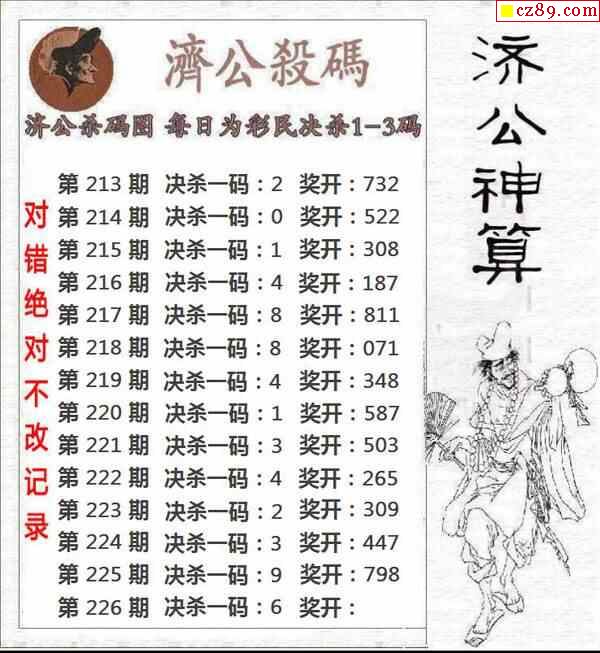 cz89.com
濟公殺碼
济公杀码图 每日为彩民决杀1-3码
第 213 期 决杀一码：2 奖开：732
第 214 期 决杀一码：0 奖开：522
第 215 期 决杀一码：1 奖开：308
第 216 期 决杀一码：4 奖开：187
第 217 期 决杀一码：8 奖开：811
第 218 期 决杀一码：8 奖开：071
第 219 期 决杀一码：4 奖开：348
第 220 期 决杀一码：1 奖开：587
第 221 期 决杀一码：3 奖开：503
第 222 期 决杀一码：4 奖开：265
第 223 期 决杀一码：2 奖开：309
第 224 期 决杀一码：3 奖开：447
第 225 期 决杀一码：9 奖开：798
第 226 期 决杀一码：6 奖开：
对错绝对不改记录
济公神算